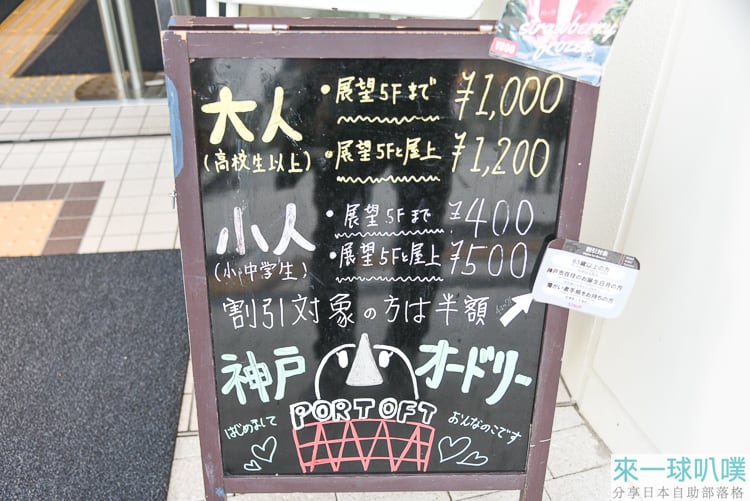 strawberry
frozen
大人
(高校生以上)
・展望5Fまで ¥1,000
・展望5Fと屋上 ¥1,200
小人
(小・中学生)
・展望5Fまで ¥400
・展望5Fと屋上 ¥500
割引対象の方は半額
割引対象
65歳以上の方
神戸市在住のお誕生日月の方
障がい者手帳をお持ちの方
神戸
オードリー
PORTOFT
はじめまして
おんなのこです
來一球叭噗
分享日本自助部落格